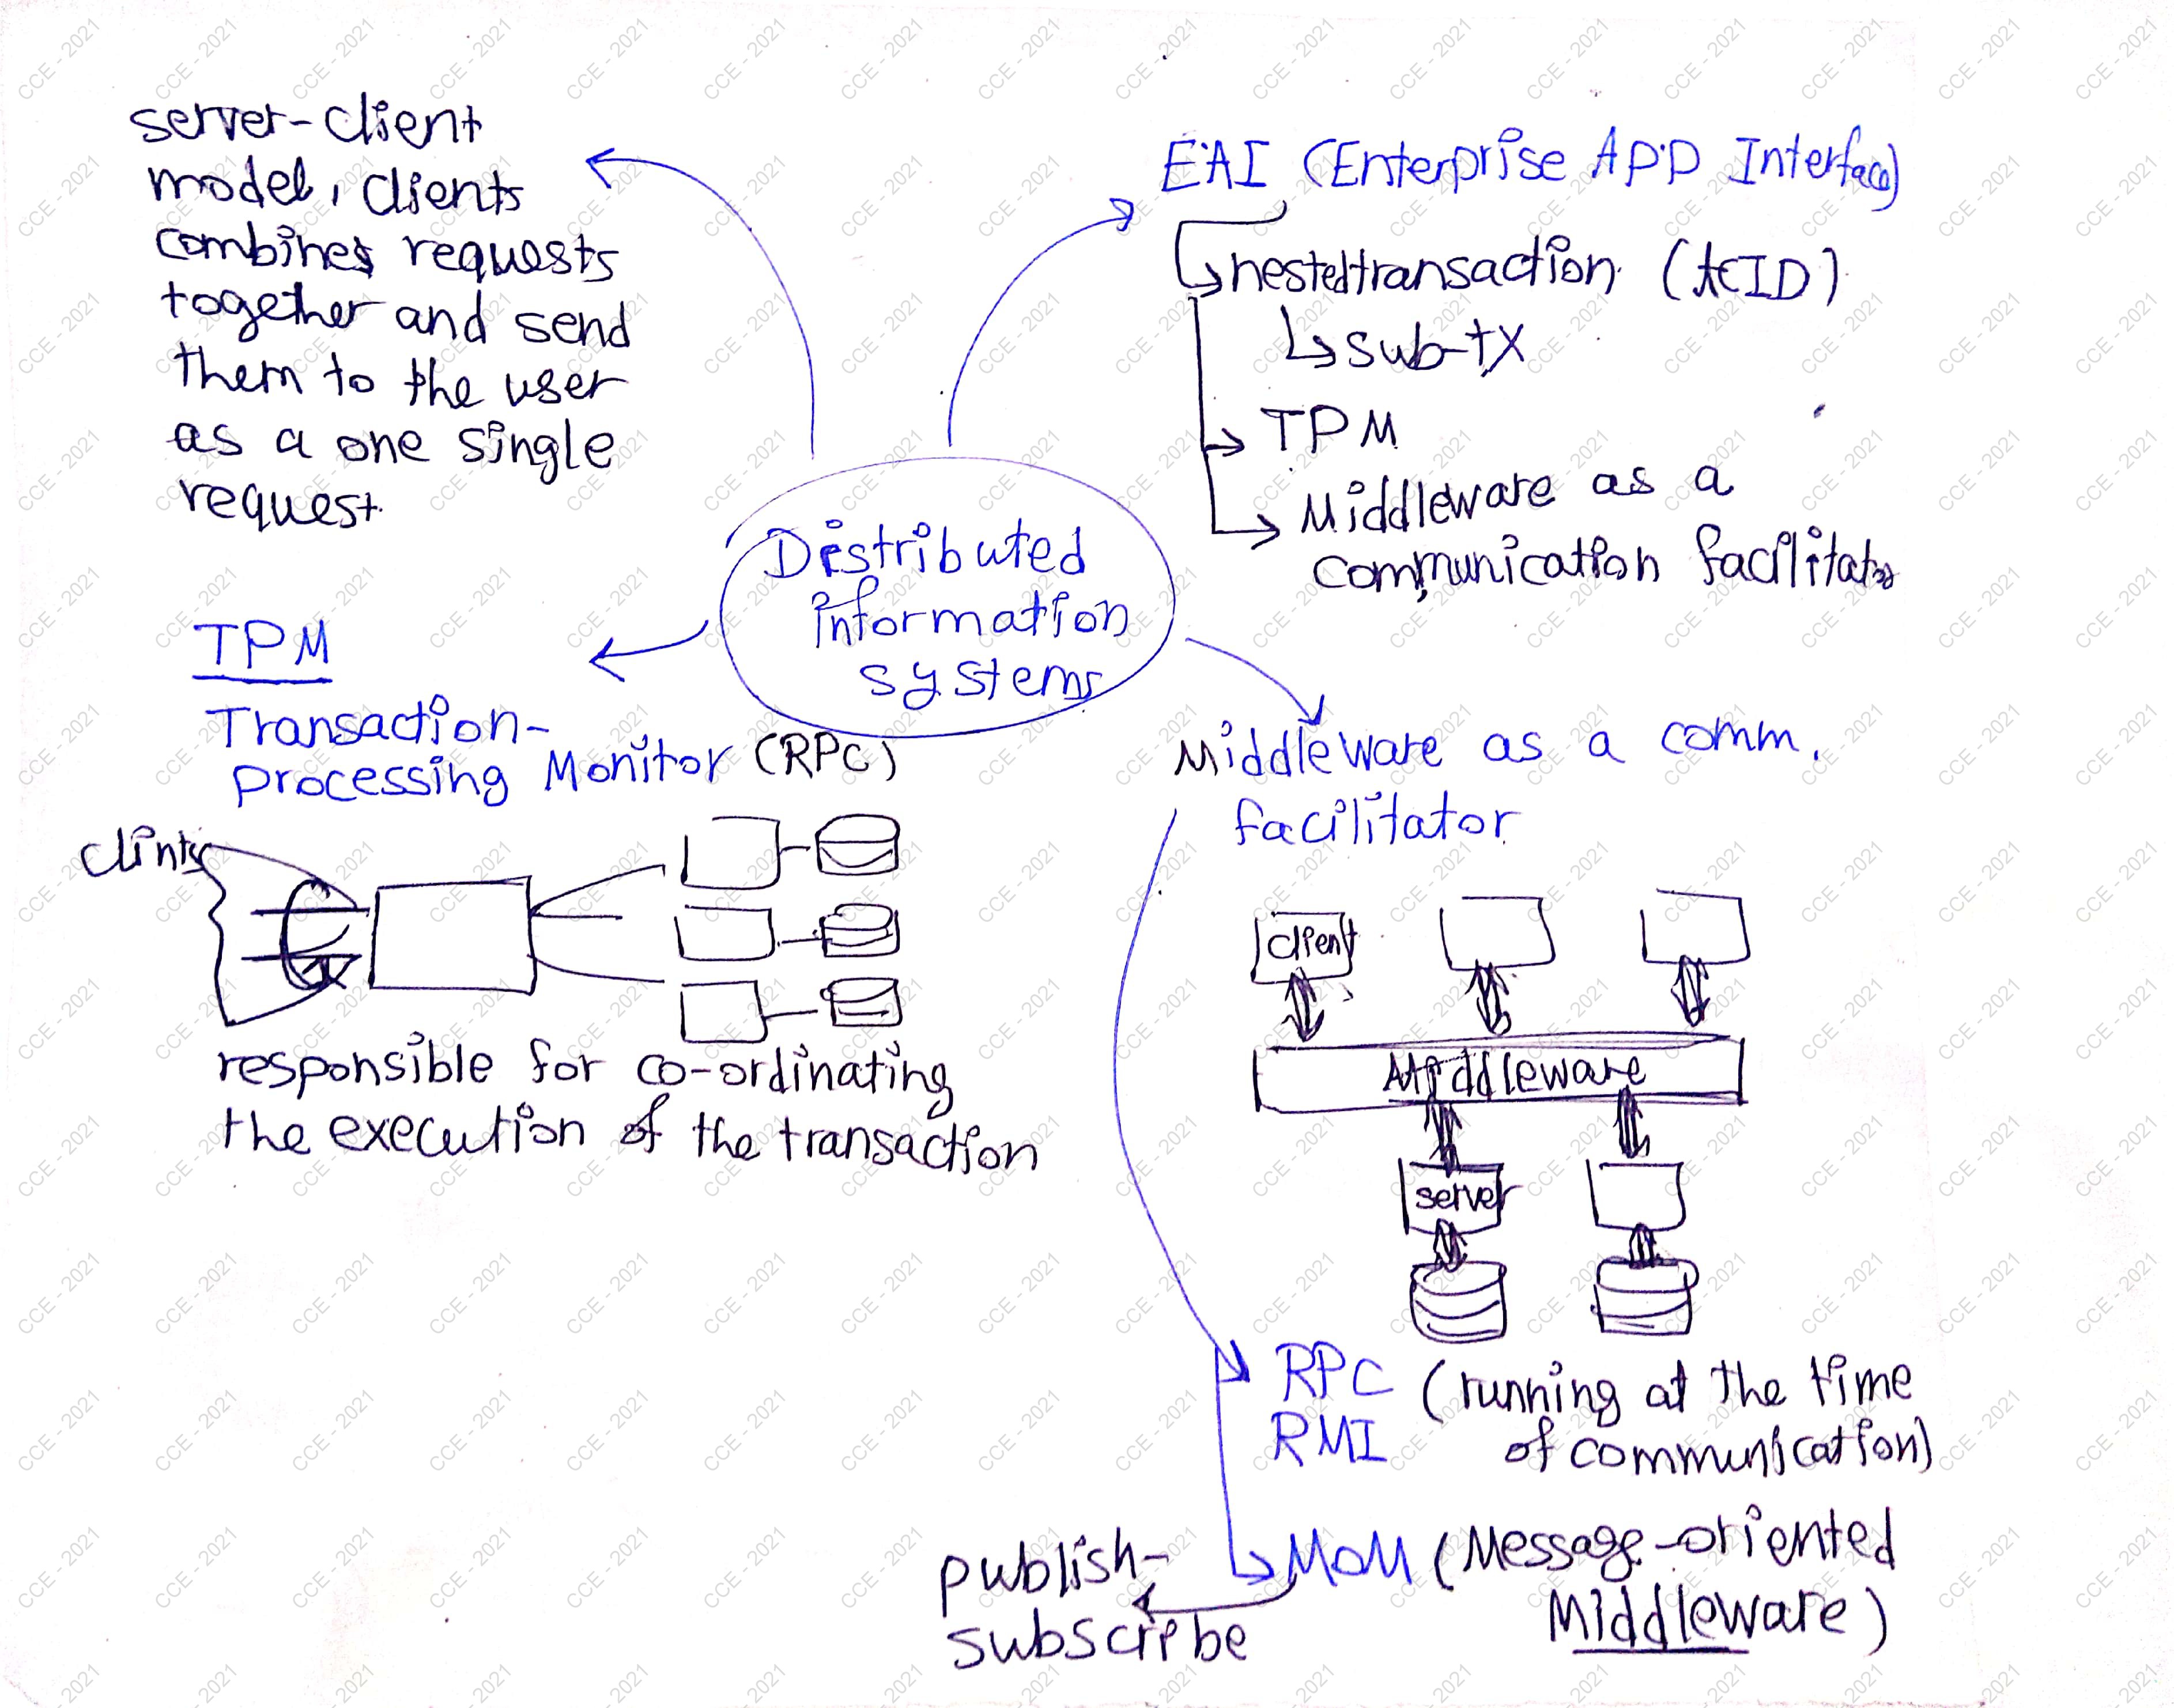 server-client
model, clients
combines requests
together and send
them to the user
as a one single
request.
EAI (Enterprise APP Interface)
nested transaction (ACID)
sub-tx
TPM
Middleware as a
communication facilitator
Distributed
information
systems
TPM
Transaction-
processing Monitor (RPC)
clints
responsible for co-ordinating
the execution of the transaction
Middleware as a comm.
facilitator
client
Middleware
server
RPC (running at the time
RMI of communication)
MOM (Message-oriented
Middleware)
publish-
subscribe
CCE - 2021